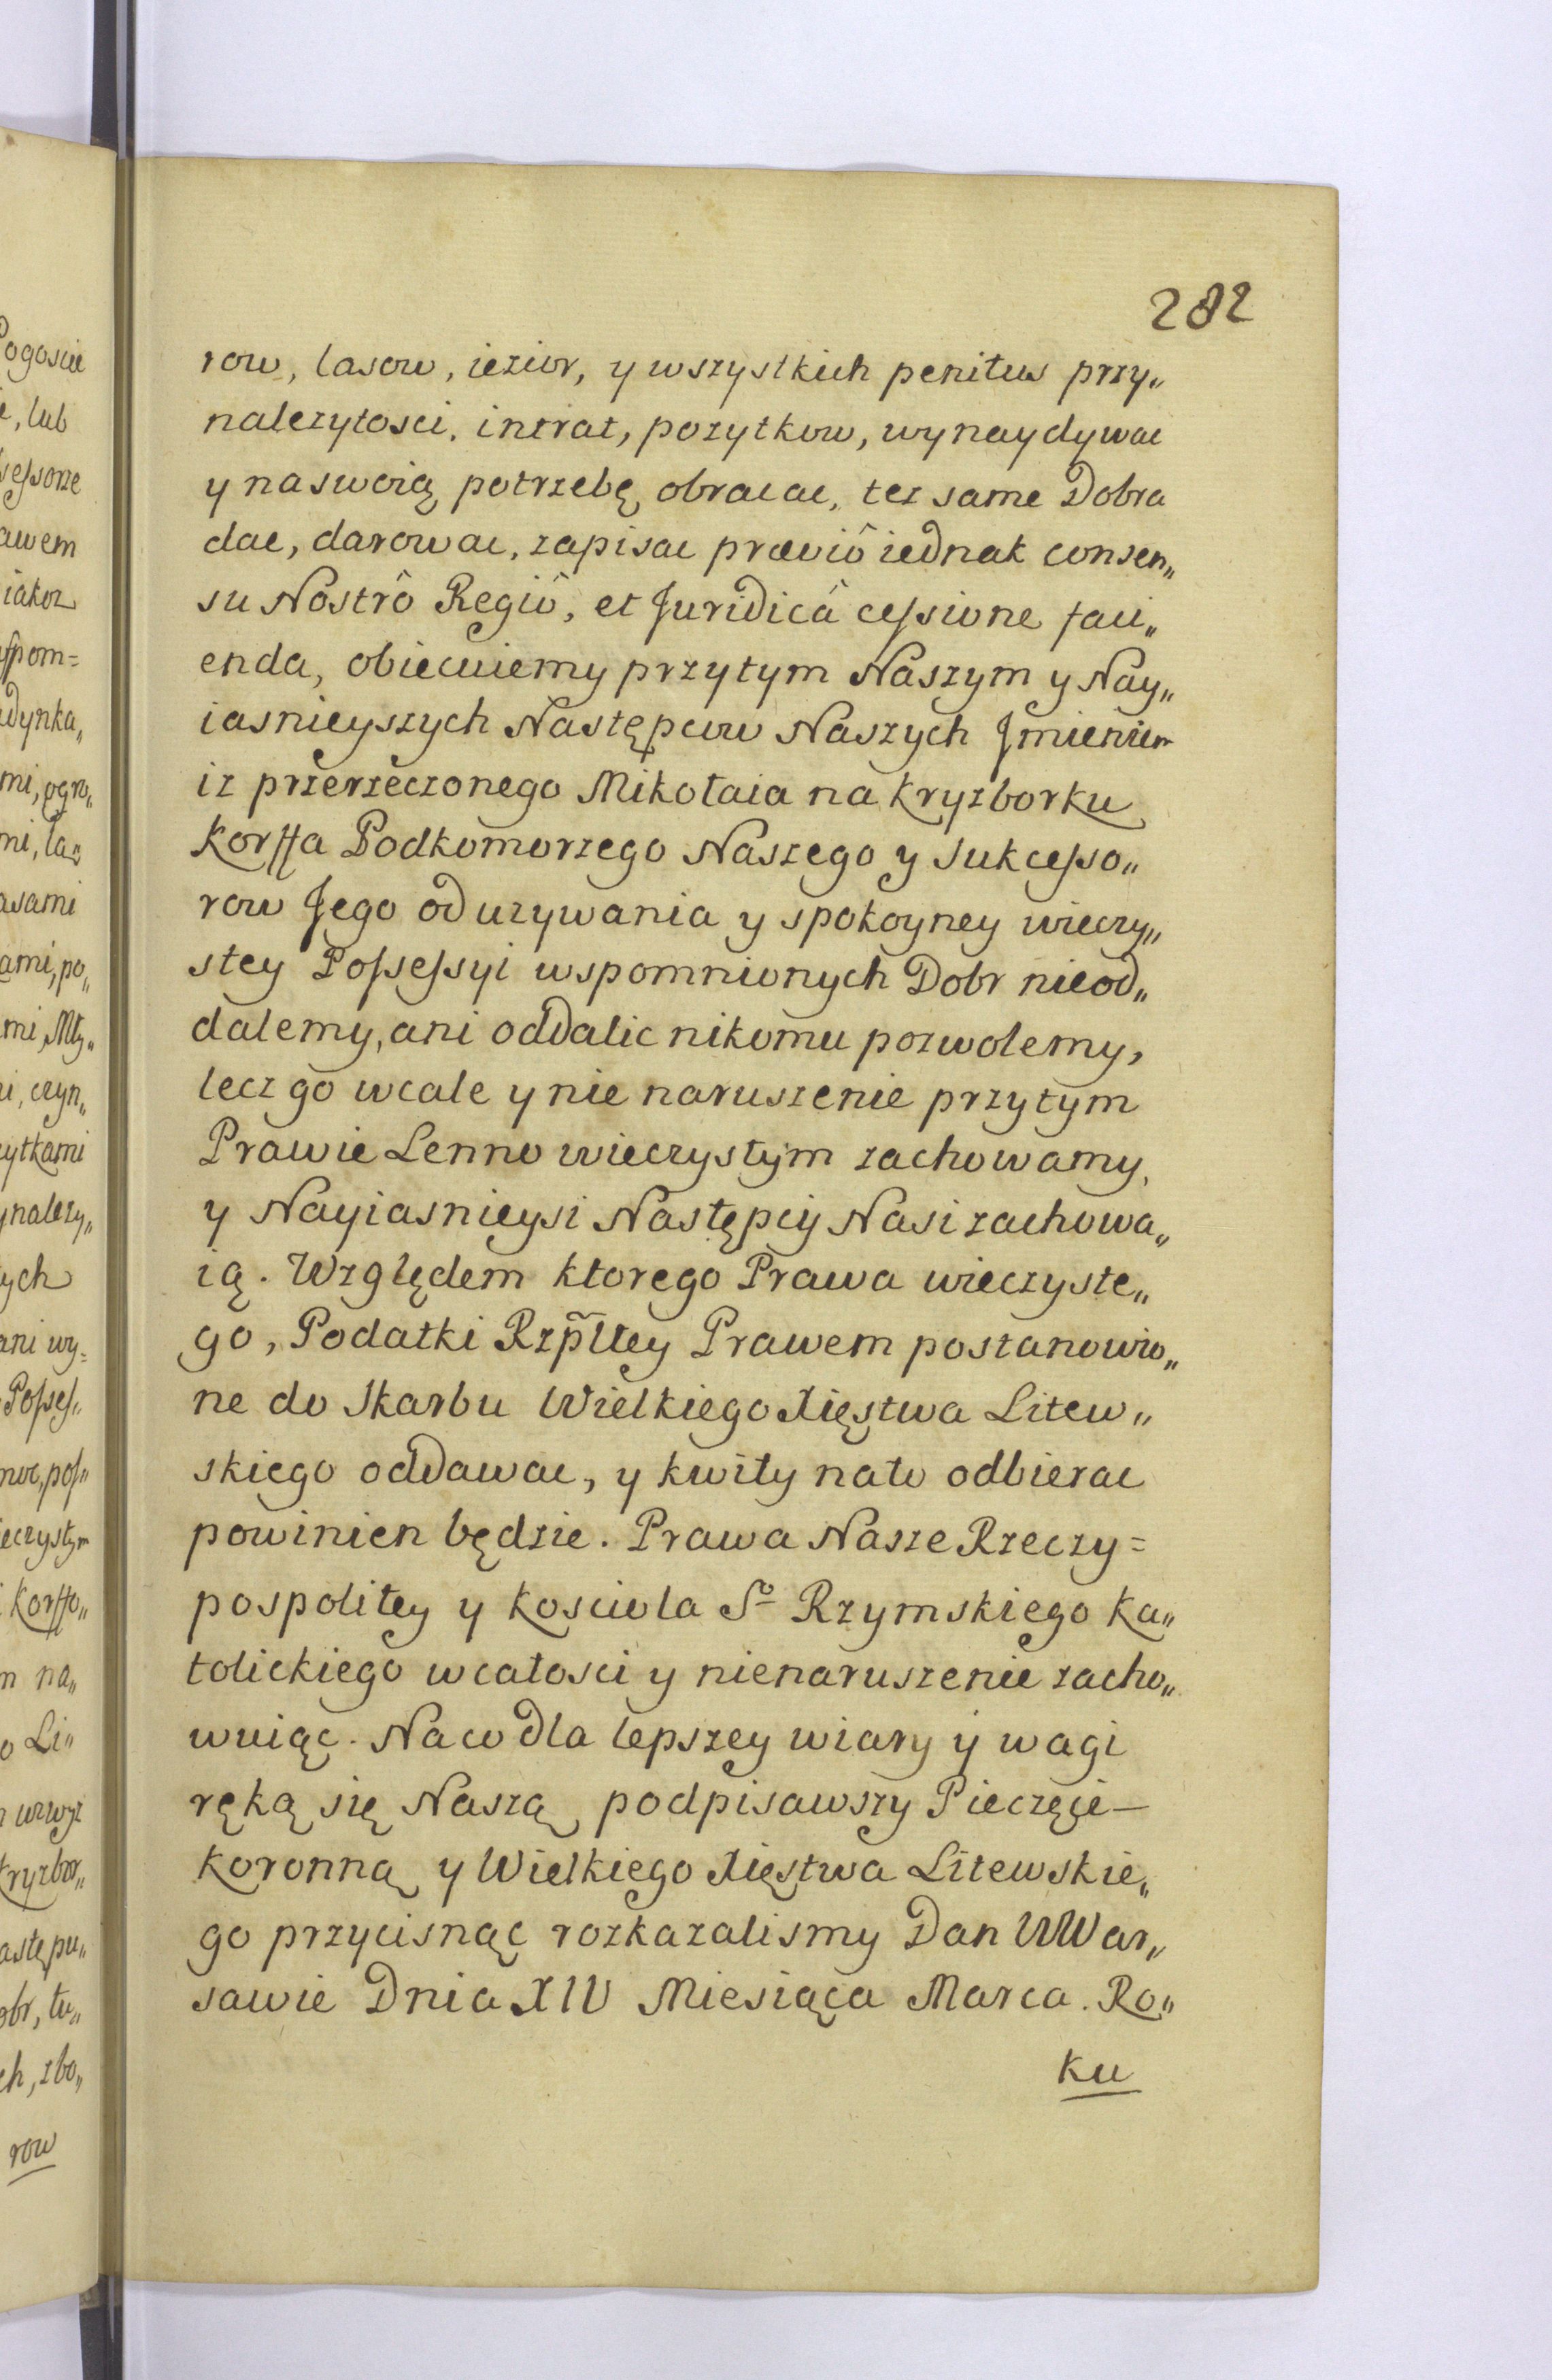 282
row, lasow, iezior, y wszystkich penitus przy„
nalezytosci, intrat, pozytkow, wynaydywac
y na swoią potrzebę obracac, tez same Dobra
dac, darowac, zapisac præviô iednak consen„
su Nostrô Regiô, et Juridicâ cessione faci„
enda, obiecuiemy przytym Naszym y Nay„
iasnieyszych Następcow Naszych Jmieniem
iz przerzeczonego Mikołaia na Kryzborku
Korffa Podkomorzego Naszego y Sukcesso„
row Jego od uzywania y spokoyney wieczy„
stey Possessyi wspomnionych Dobr nieod„
dalemy, ani oddalic nikomu pozwolemy,
lecz go wcale y nie naruszenie przytym
Prawie Lenno wieczystym zachowamy,
y Nayiasnieysi Następcy Nasi zachowa„
ią. Względem ktorego Prawa wieczyste„
go, Podatki Rzp̃ltey Prawem postanowio„
ne do Skarbu Wielkiego Xięstwa Litew„
skiego oddawac, y kwity nato odbierac
powinien będzie. Prawa Nasze Rzeczy=
pospolitey y Kosciola Sº Rzymskiego Ka„
tolickiego wcałosci y nienaruszenie zacho„
wuiąc. Naco dla lepszey wiary y wagi
ręką się Naszą podpisawszy Pieczęcie—
Koronną y Wielkiego Xięstwa Litewskie„
go przycisnąc rozkazalismy Dan WWar„
sawie Dnia XIV Miesiąca Marca. Ro„
ku
Pogoscie
lub
awem
iakoz
mi, ogro„
asami
ami, po„
mi, Mły„
ytkami
ynalezy„
ych
ani wy=
Posses„
eczystym
Korffo„
na„
Li„
wzwyz
Kryzbor„
astępu„
obr, tu„
zbo„
row